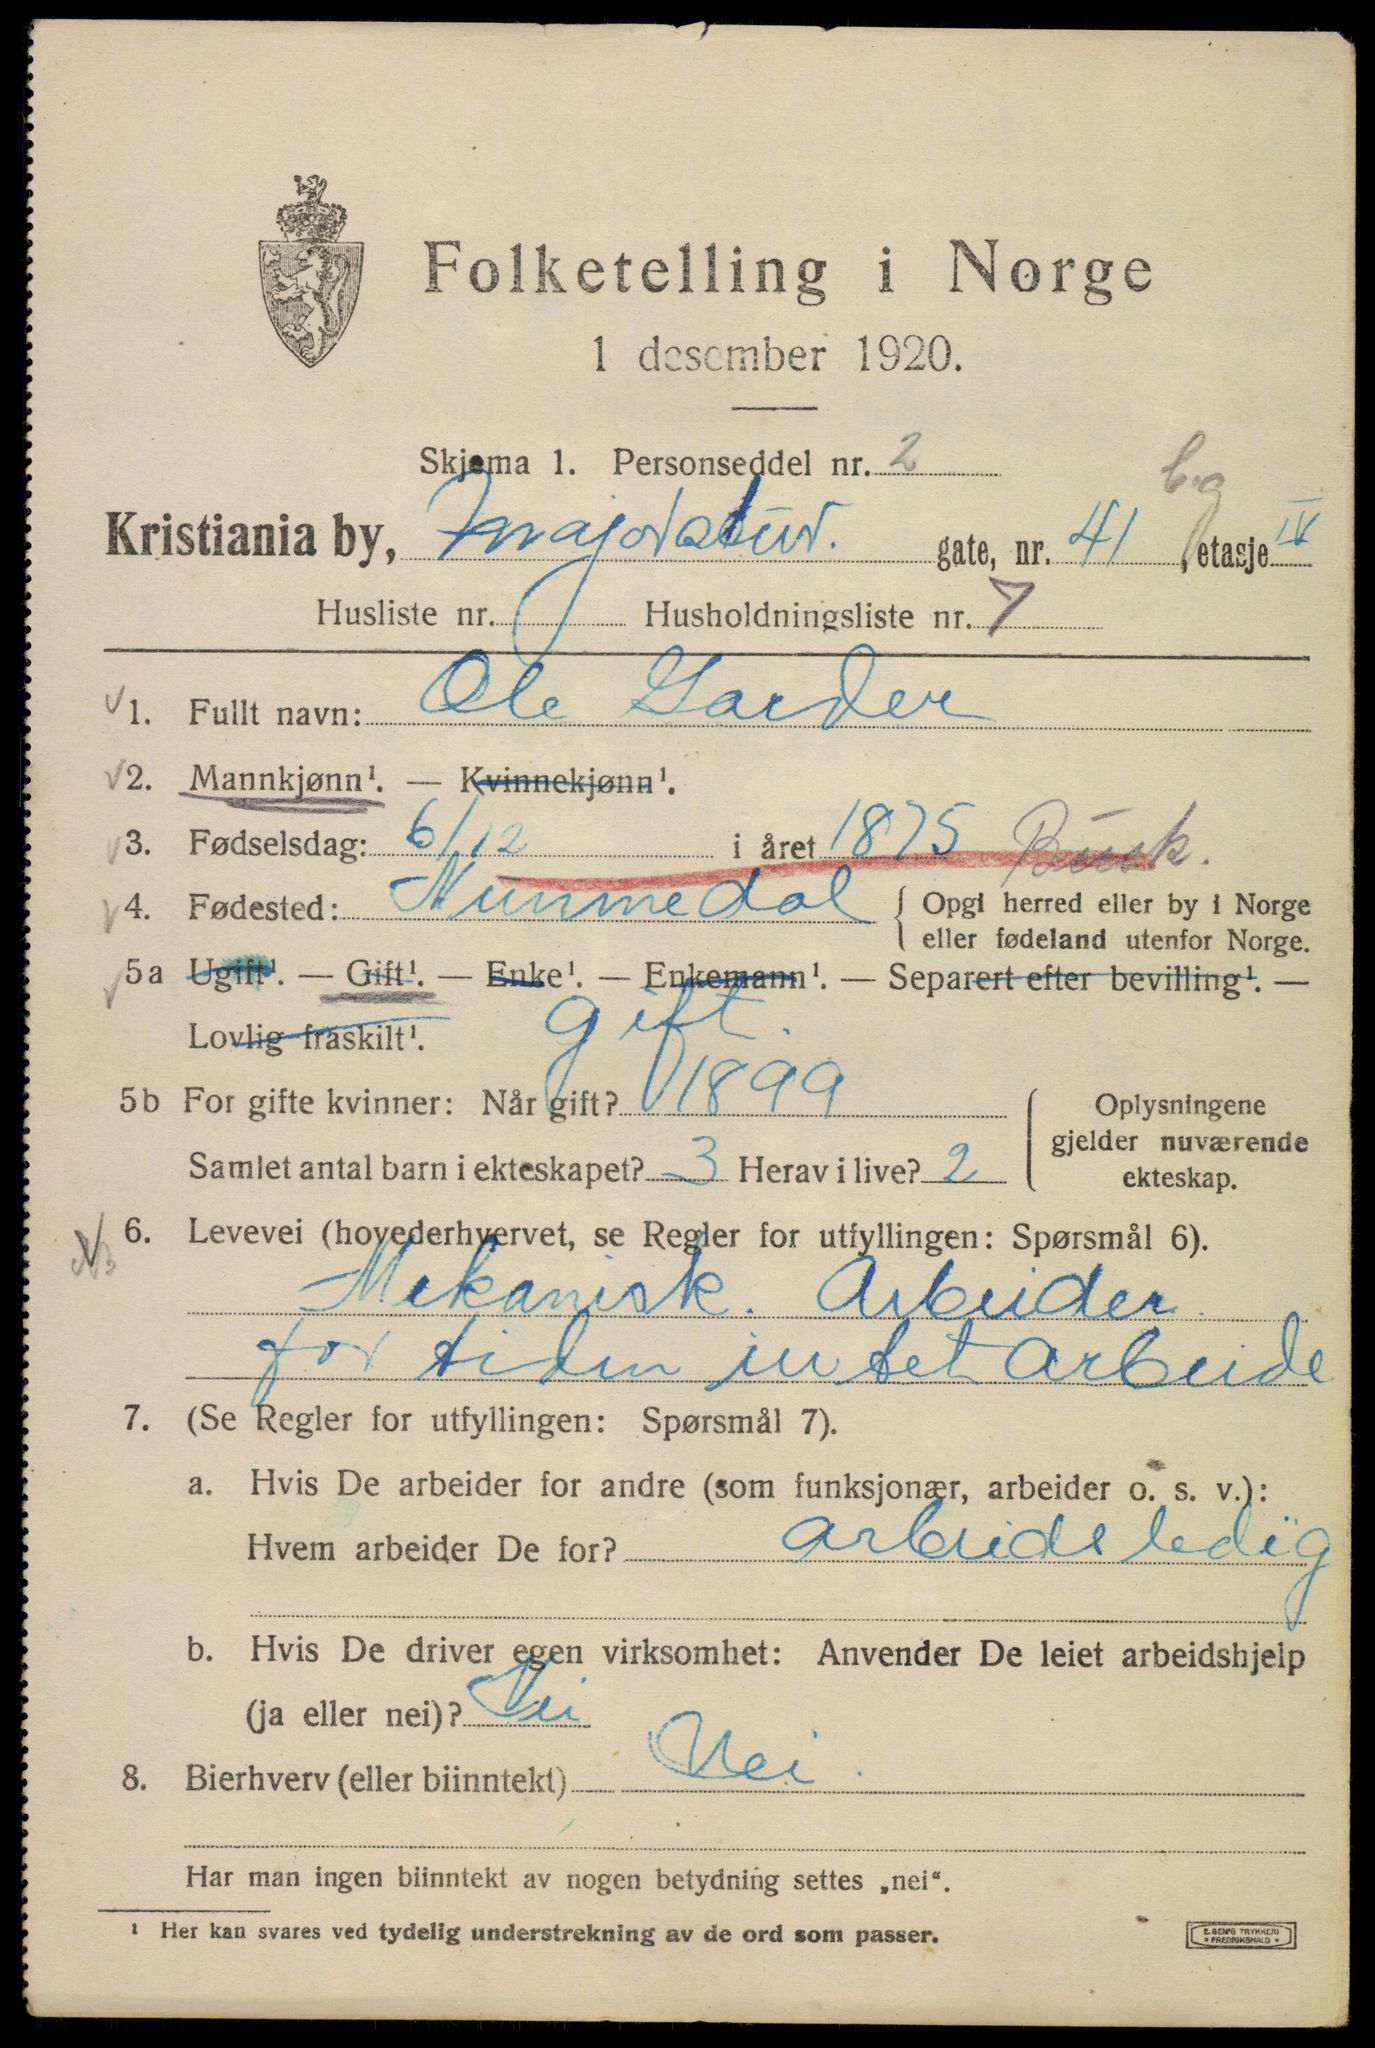 Folketelling i Norge
1 desember 1920.
Skjema 1. Personseddel nr. 2
b.g
Kristiania by, Majorstuv. gate, nr. 41, etasje IV
Husliste nr. Husholdningsliste nr. 7
1. Fullt navn: Ole Garder
2. Mannkjønn¹. — Kvinnekjønn¹.
3. Fødselsdag: 6/12 i året 1875 Busk.
4. Fødested: Nummedal { Opgi herred eller by i Norge
eller fødeland utenfor Norge.
5a Ugift¹. — Gift¹. — Enke¹. — Enkemann¹. — Separert efter bevilling¹. —
Lovlig fraskilt¹. gift.
5b For gifte kvinner: Når gift? 1899 Oplysningene
gjelder nuværende
Samlet antal barn i ekteskapet? 3 Herav i live? 2 ekteskap.
6. Levevei (hovederhvervet, se Regler for utfyllingen: Spørsmål 6).
Mekanisk. Arbeider
for tiden intet arbeide
7. (Se Regler for utfyllingen: Spørsmål 7).
a. Hvis De arbeider for andre (som funksjonær, arbeider o. s. v.):
Hvem arbeider De for? arbeidsledig
b. Hvis De driver egen virksomhet: Anvender De leiet arbeidshjelp
(ja eller nei)? Nei
8. Bierhverv (eller biinntekt) Nei.
Har man ingen biinntekt av nogen betydning settes „nei".
¹ Her kan svares ved tydelig understrekning av de ord som passer.
E. SEM'S TRYKKERI
FREDRIKSHALD